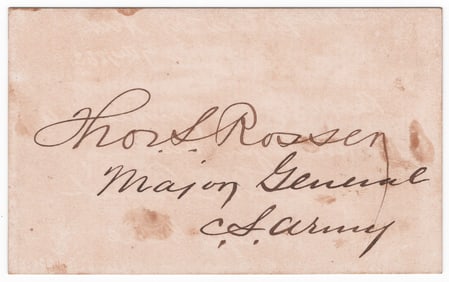 Thos. L. Rosser
Major General
C.S. Army